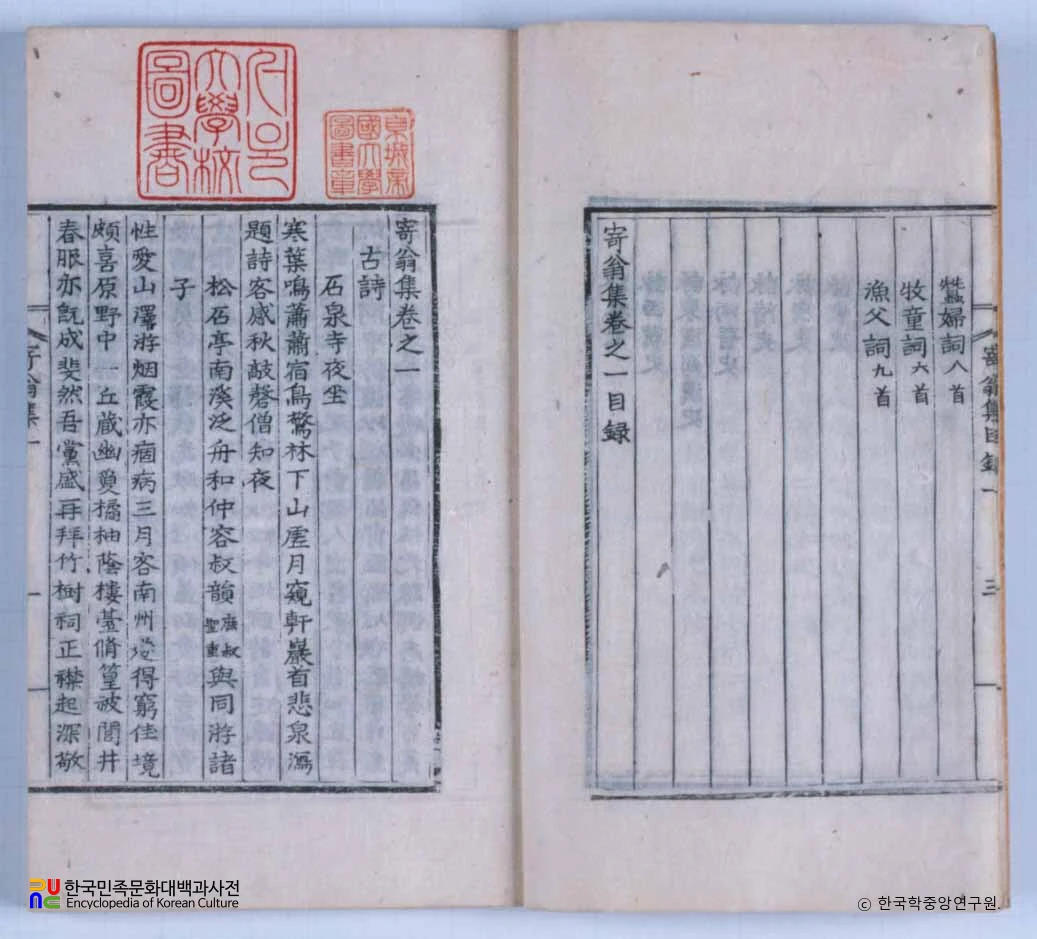 寄翁集目錄一
三
蠶婦詞八首
牧童詞六首
漁父詞九首
寄翁集卷之一目録
京城帝國大學圖書章
서울大學校圖書
寄翁集卷之一
古詩
石泉寺夜坐
寒葉鳴蕭蕭宿鳥驚林下山虛月窺軒巖首悲泉瀉
題詩客感秋敲磬僧知夜
松石亭南溪泛舟和仲容叔韻族叔聖重與同游諸
子
性愛山澤游烟霞亦痼病三月客南州恣得窮佳境
頗喜原野中一丘藏幽夐橘柚蔭樓臺脩篁被閭井
春服亦旣成斐然吾黨盛再拜竹樹祠正襟起深敬
寄翁集一
한국민족문화대백과사전
Encyclopedia of Korean Culture
ⓒ 한국학중앙연구원.